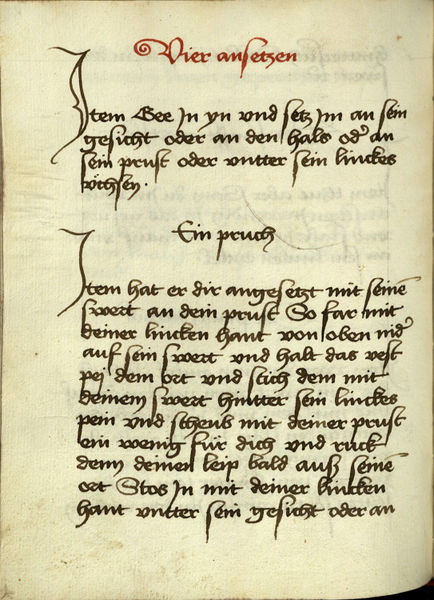 Vier ansetzen
Item Gee In yn vnd setz Im an sein
gesicht oder an den hals od' an
sein prust oder vntter sein linckes
vchsen.
Ein pruch
Item hat er dir angesetzt mit seinē
swert an dein prust So far mit
deiner lincken hant von oben nid'
auf sein swert vnd halt das vest
pei dem ort vnd stich dem mit
deinem swert hintter sein linckes
pein vnd scheub mit deiner prust
ein wenig für dich vnd ruck
dem deinen leip bald auß seinē
ort Stos In mit deiner lincken
hant vntter sein gesicht oder an